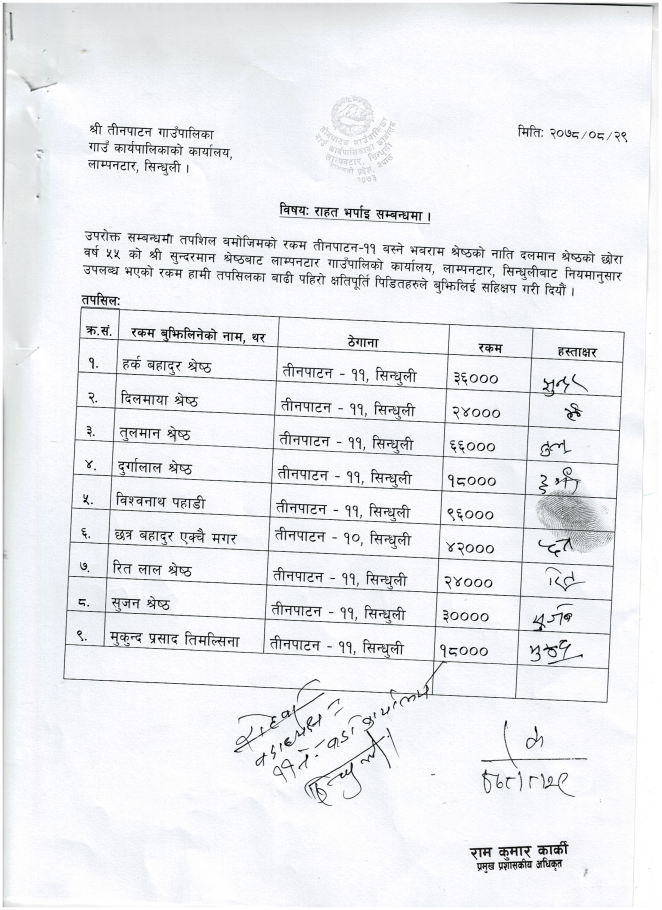 श्री तीनपाटन गाउँपालिका
गाउँ कार्यपालिकाको कार्यालय,
लाम्पनटार, सिन्धुली ।
मिति: २०७८/०८/२९
विषय: राहत भर्पाइ सम्बन्धमा ।
उपरोक्त सम्बन्धमा तपशिल बमोजिमको रकम तीनपाटन-११ बस्ने भबराम श्रेष्ठको नाति दलमान श्रेष्ठको छोरा
वर्ष ५५ को श्री सुन्दरमान श्रेष्ठबाट लाम्पनटार गाउँपालिको कार्यालय, लाम्पनटार, सिन्धुलीबाट नियमानुसार
उपलब्ध भएको रकम हामी तपसिलका बाढी पहिरो क्षतिपूर्ति पिडितहरुले बुझिलिई सहिक्षप गरी दियौं ।
तपसिल:
क्र.सं. रकम बुझिलिनेको नाम, थर ठेगाना रकम हस्ताक्षर
१. हर्क बहादुर श्रेष्ठ तीनपाटन - ११, सिन्धुली ३६०००
२. दिलमाया श्रेष्ठ तीनपाटन - ११, सिन्धुली २४०००
३. तुलमान श्रेष्ठ तीनपाटन - ११, सिन्धुली ६६०००
४. दुर्गालाल श्रेष्ठ तीनपाटन - ११, सिन्धुली १८०००
५. विश्वनाथ पहाडी तीनपाटन - ११, सिन्धुली ९६०००
६. छत्र बहादुर एक्चै मगर तीनपाटन - १०, सिन्धुली ४२०००
७. रित लाल श्रेष्ठ तीनपाटन - ११, सिन्धुली २४०००
८. सुजन श्रेष्ठ तीनपाटन - ११, सिन्धुली ३००००
९. मुकुन्द प्रसाद तिमल्सिना तीनपाटन - ११, सिन्धुली १८०००
राम कुमार कार्की
प्रमुख प्रशासकीय अधिकृत